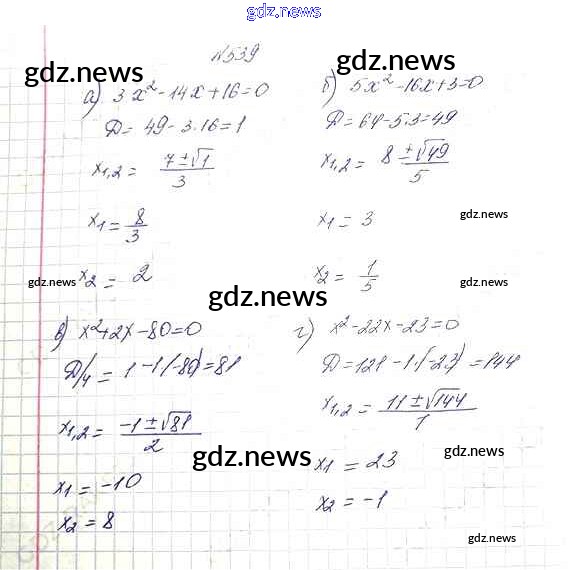 gdz.news
№539
gdz.news
gdz.news
а) 3x²-14x+16=0
D= 49-3.16=1
x1,2= 7±√1/3
x1= 8/3
x2= 2
б) 5x²-16x+3=0
D=64-5.3=49
x1,2= 8±√49/5
x1= 3
gdz.news
x2= 1/5
gdz.news
gdz.news
gdz.news
в) x²+2x-80=0
D/4= 1-1(-80)=81
x1,2= -1±√81/2
x1=-10
x2=8
г) x²-22x-23=0
D=121-1.(-23)=144
gdz.news
x1,2= 11±√144/1
gdz.news
x1=23
gdz.news
x2=-1
gdz.news